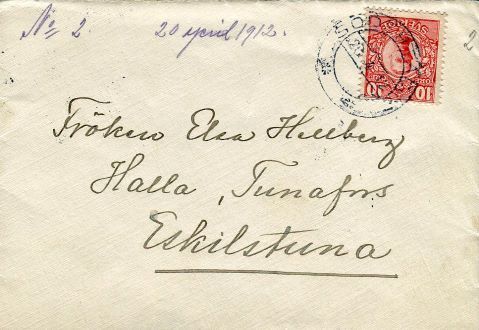 No 2. 20 april 1912.
2
SVERIGE
10 10
Fröken Elsa Hellberg
Halla, Tunafors
Eskilstuna